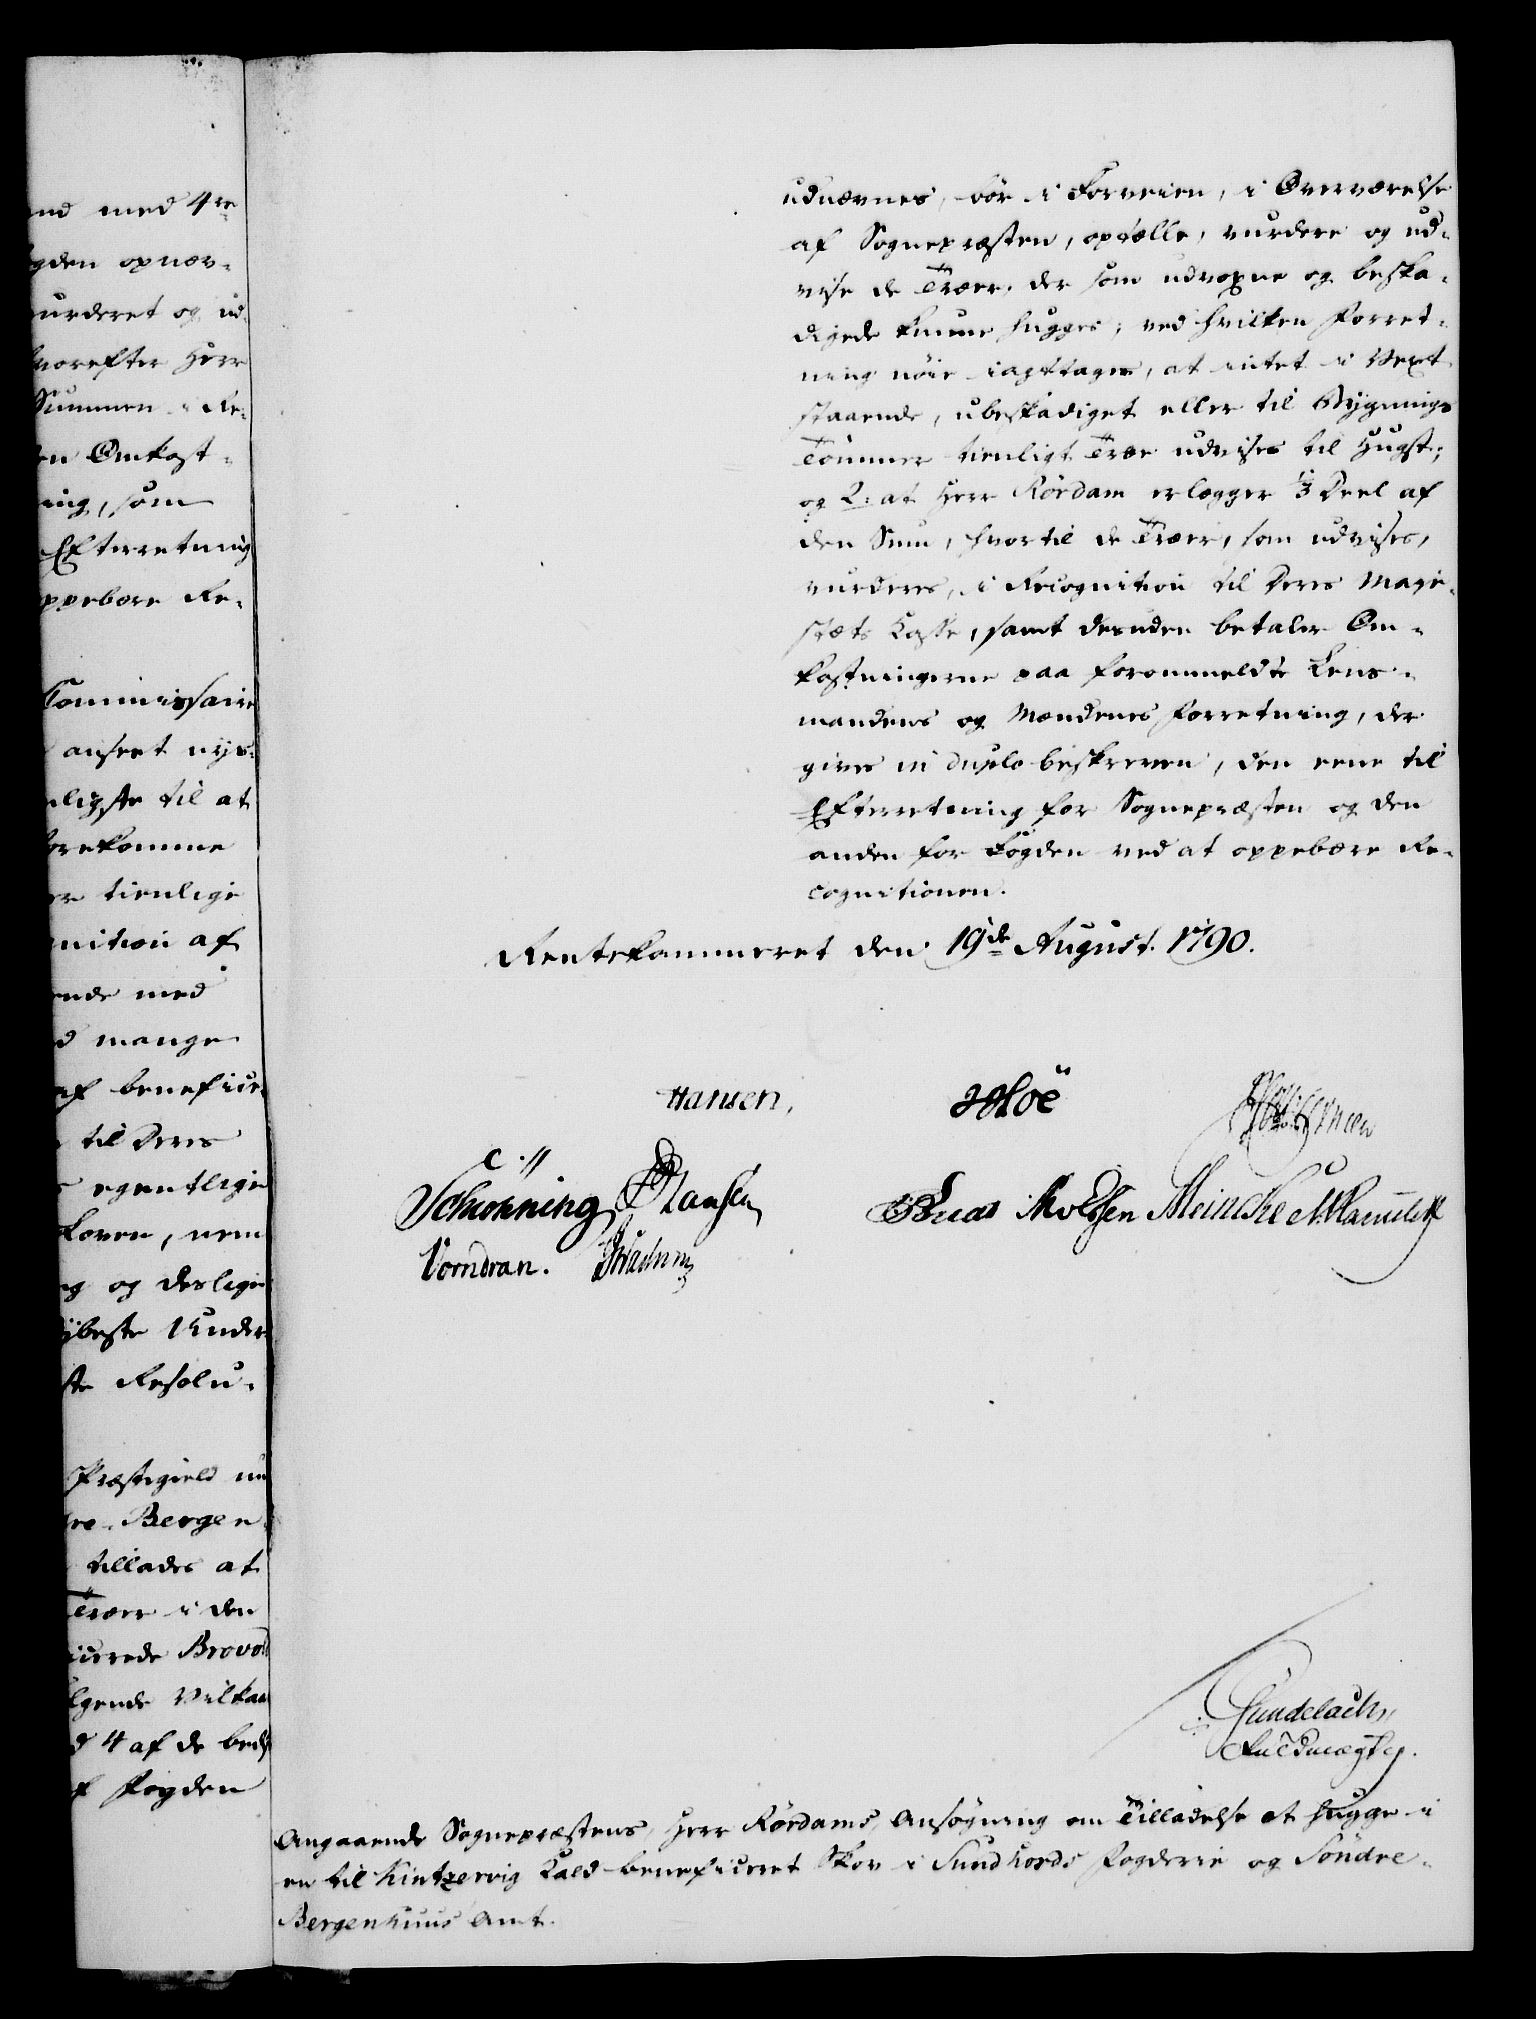 end med 4re
ogden opnæv-
urderet og ud-
vorefter Herr
Summen i Re-
en Omkost-
ing, som
Efterretning
ppebære Re-
Commissaire
anseet nys-
ligste til at
forekomme
er tienlige
nition af
ende med
d mange
af beneficie-
til Deres
s egentlige
Loven, nem
g og deslige
ste Resolu-
Præstegield un
re Bergen-
tillades at
Træer i den
icerede
lgende Vilkaar
d 4 af de
f Fogden
udnævnes, bör i Forveien, i Overværelse
af Sognepræsten, optælle, vurdere og ud-
vise de Træer, der som udvoxne og beska-
digede kunne hugges; ved hvilken Forret-
ning nöie iagttages, at intet i Vext
staaende, ubeskadiget eller til Bygnings
Tömmer tienligt Træe udvises til Hugst;
og 2: at Herr Rördam erlægger 1/3 Deel af
den Sum, hvortil de Træer, som udvises,
vurderes, i Recognition til Deres Maje-
stæts Kasse, samt desuden betaler Om-
kostningerne paa forommeldte Lens-
mandens og Mændenes Forretning, der
gives in duplo beskreven, den eene til
Efterretning for Sognepræsten og den
anden for Fogden ved at oppebære Re-
cognitionen.
Rentekammeret den 19de August 1790.
Hansen,
Hoë
Schönning Hansen
Meincke
Vorndran.
Gundelach,
Fuldmægtig.
Angaaende Sognepræstens, Herr Rördams, Ansögning om Tilladelse at hugge i
en til Kintzervig Kald beneficeret Skov i Sundhords Fogderie og Söndre-
Bergenhuus Amt.